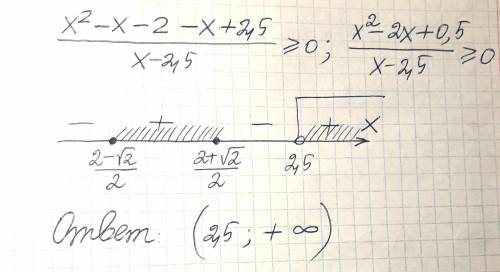 (x² - x - 2 - x + 2,5)/(x - 2,5) ≥ 0 ; (x² - 2x + 0,5)/(x - 2,5) ≥ 0
- + - + x
(2-√2)/2 (2+√2)/2 2,5
Ответ: (2,5 ; + ∞)